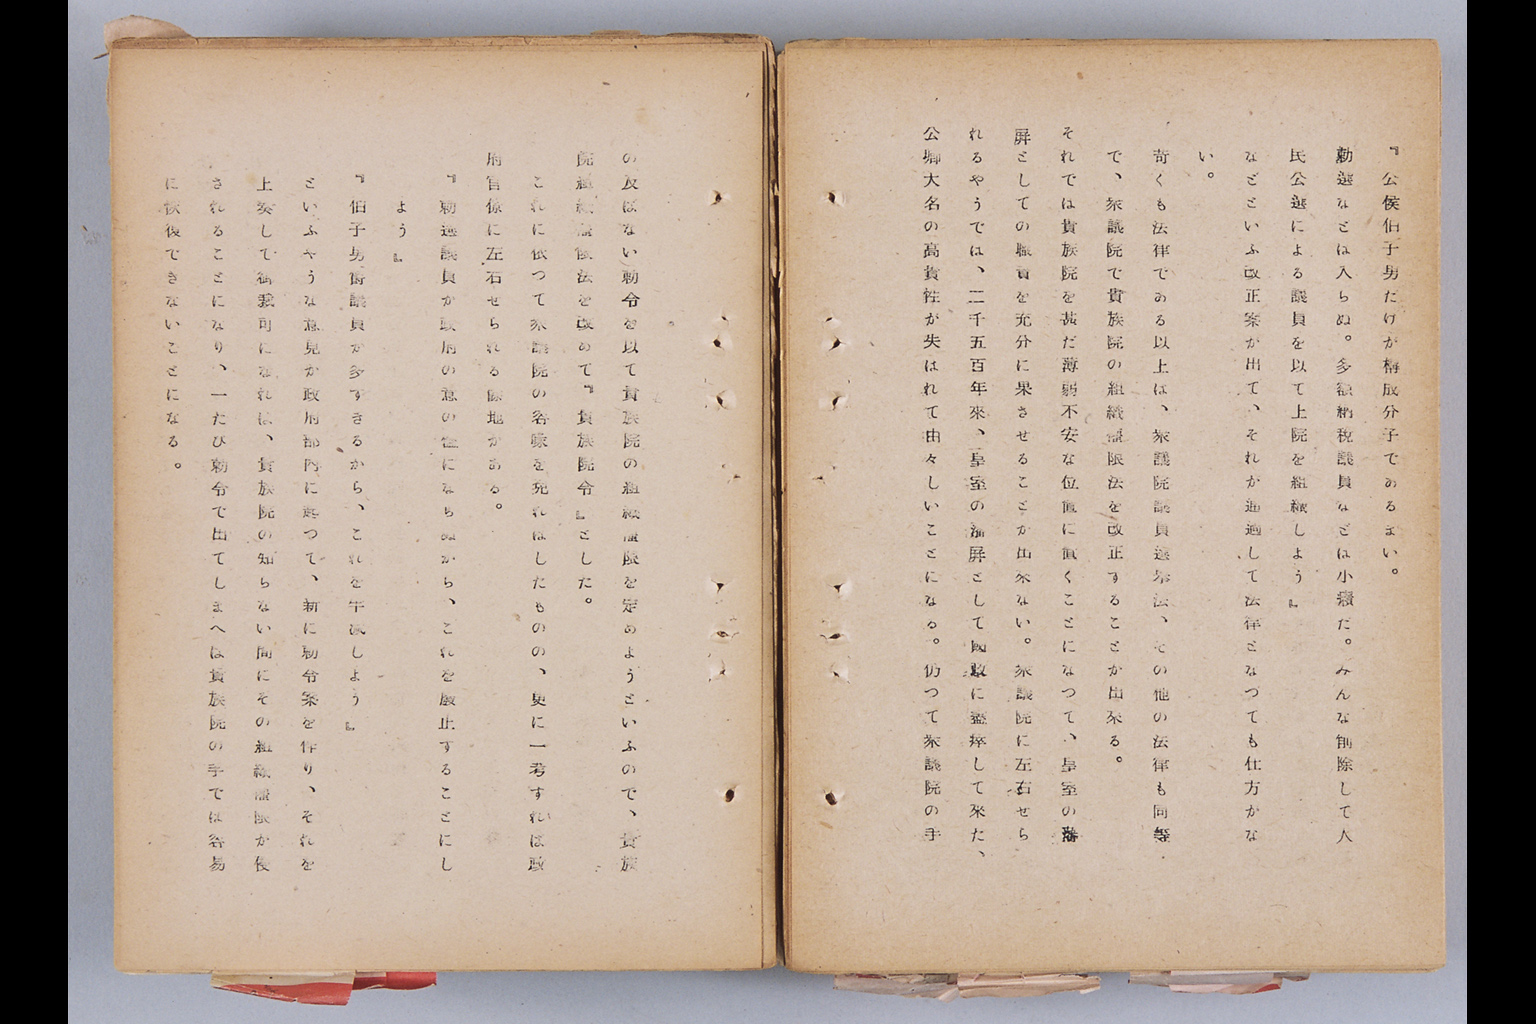 『公侯伯子男だけが構成分子であるまい。
勅選などは入らぬ。多額納税議員などは小癪だ。みんな削除して人
民公選による議員を以て上院を組織しよう』
などといふ改正案が出て、それが通過して法律となつても仕方がな
い。
苟くも法律である以上は、衆議院議員選挙法、その他の法律も同等
で、衆議院で貴族院の組織権限法を改正することが出来る。
それでは貴族院を甚だ薄弱不安な位置に置くことになつて、皇室の藩
屏としての職責を充分に果させることが出来ない。衆議院に左右せら
れるやうでは、二千五百年來、皇室の藩屏として國政に盡瘁して來た、
公卿大名の高貴性が失はれて由々しいことになる。仍つて衆議院の手
の及ばない勅令を以て貴族院の組織権限を定めようといふので、貴族
院組織権限法を改めて『貴族院令』とした。
これに依つて衆議院の容喙を免れはしたものの、更に一考すれば政
府官僚に左右せられる餘地がある。
『勅選議員が政府の意の儘にならぬから、これを廢止することにし
よう』
『伯子男爵議員が多すぎるから、これを半減しよう』
といふやうな意見が政府部内に起つて、新に勅令案を作り、それを
上奏して御裁可になれば、貴族院の知らない間にその組織権限が侵
されることになり、一たび勅令で出てしまへば貴族院の手では容易
に恢復できないことになる。